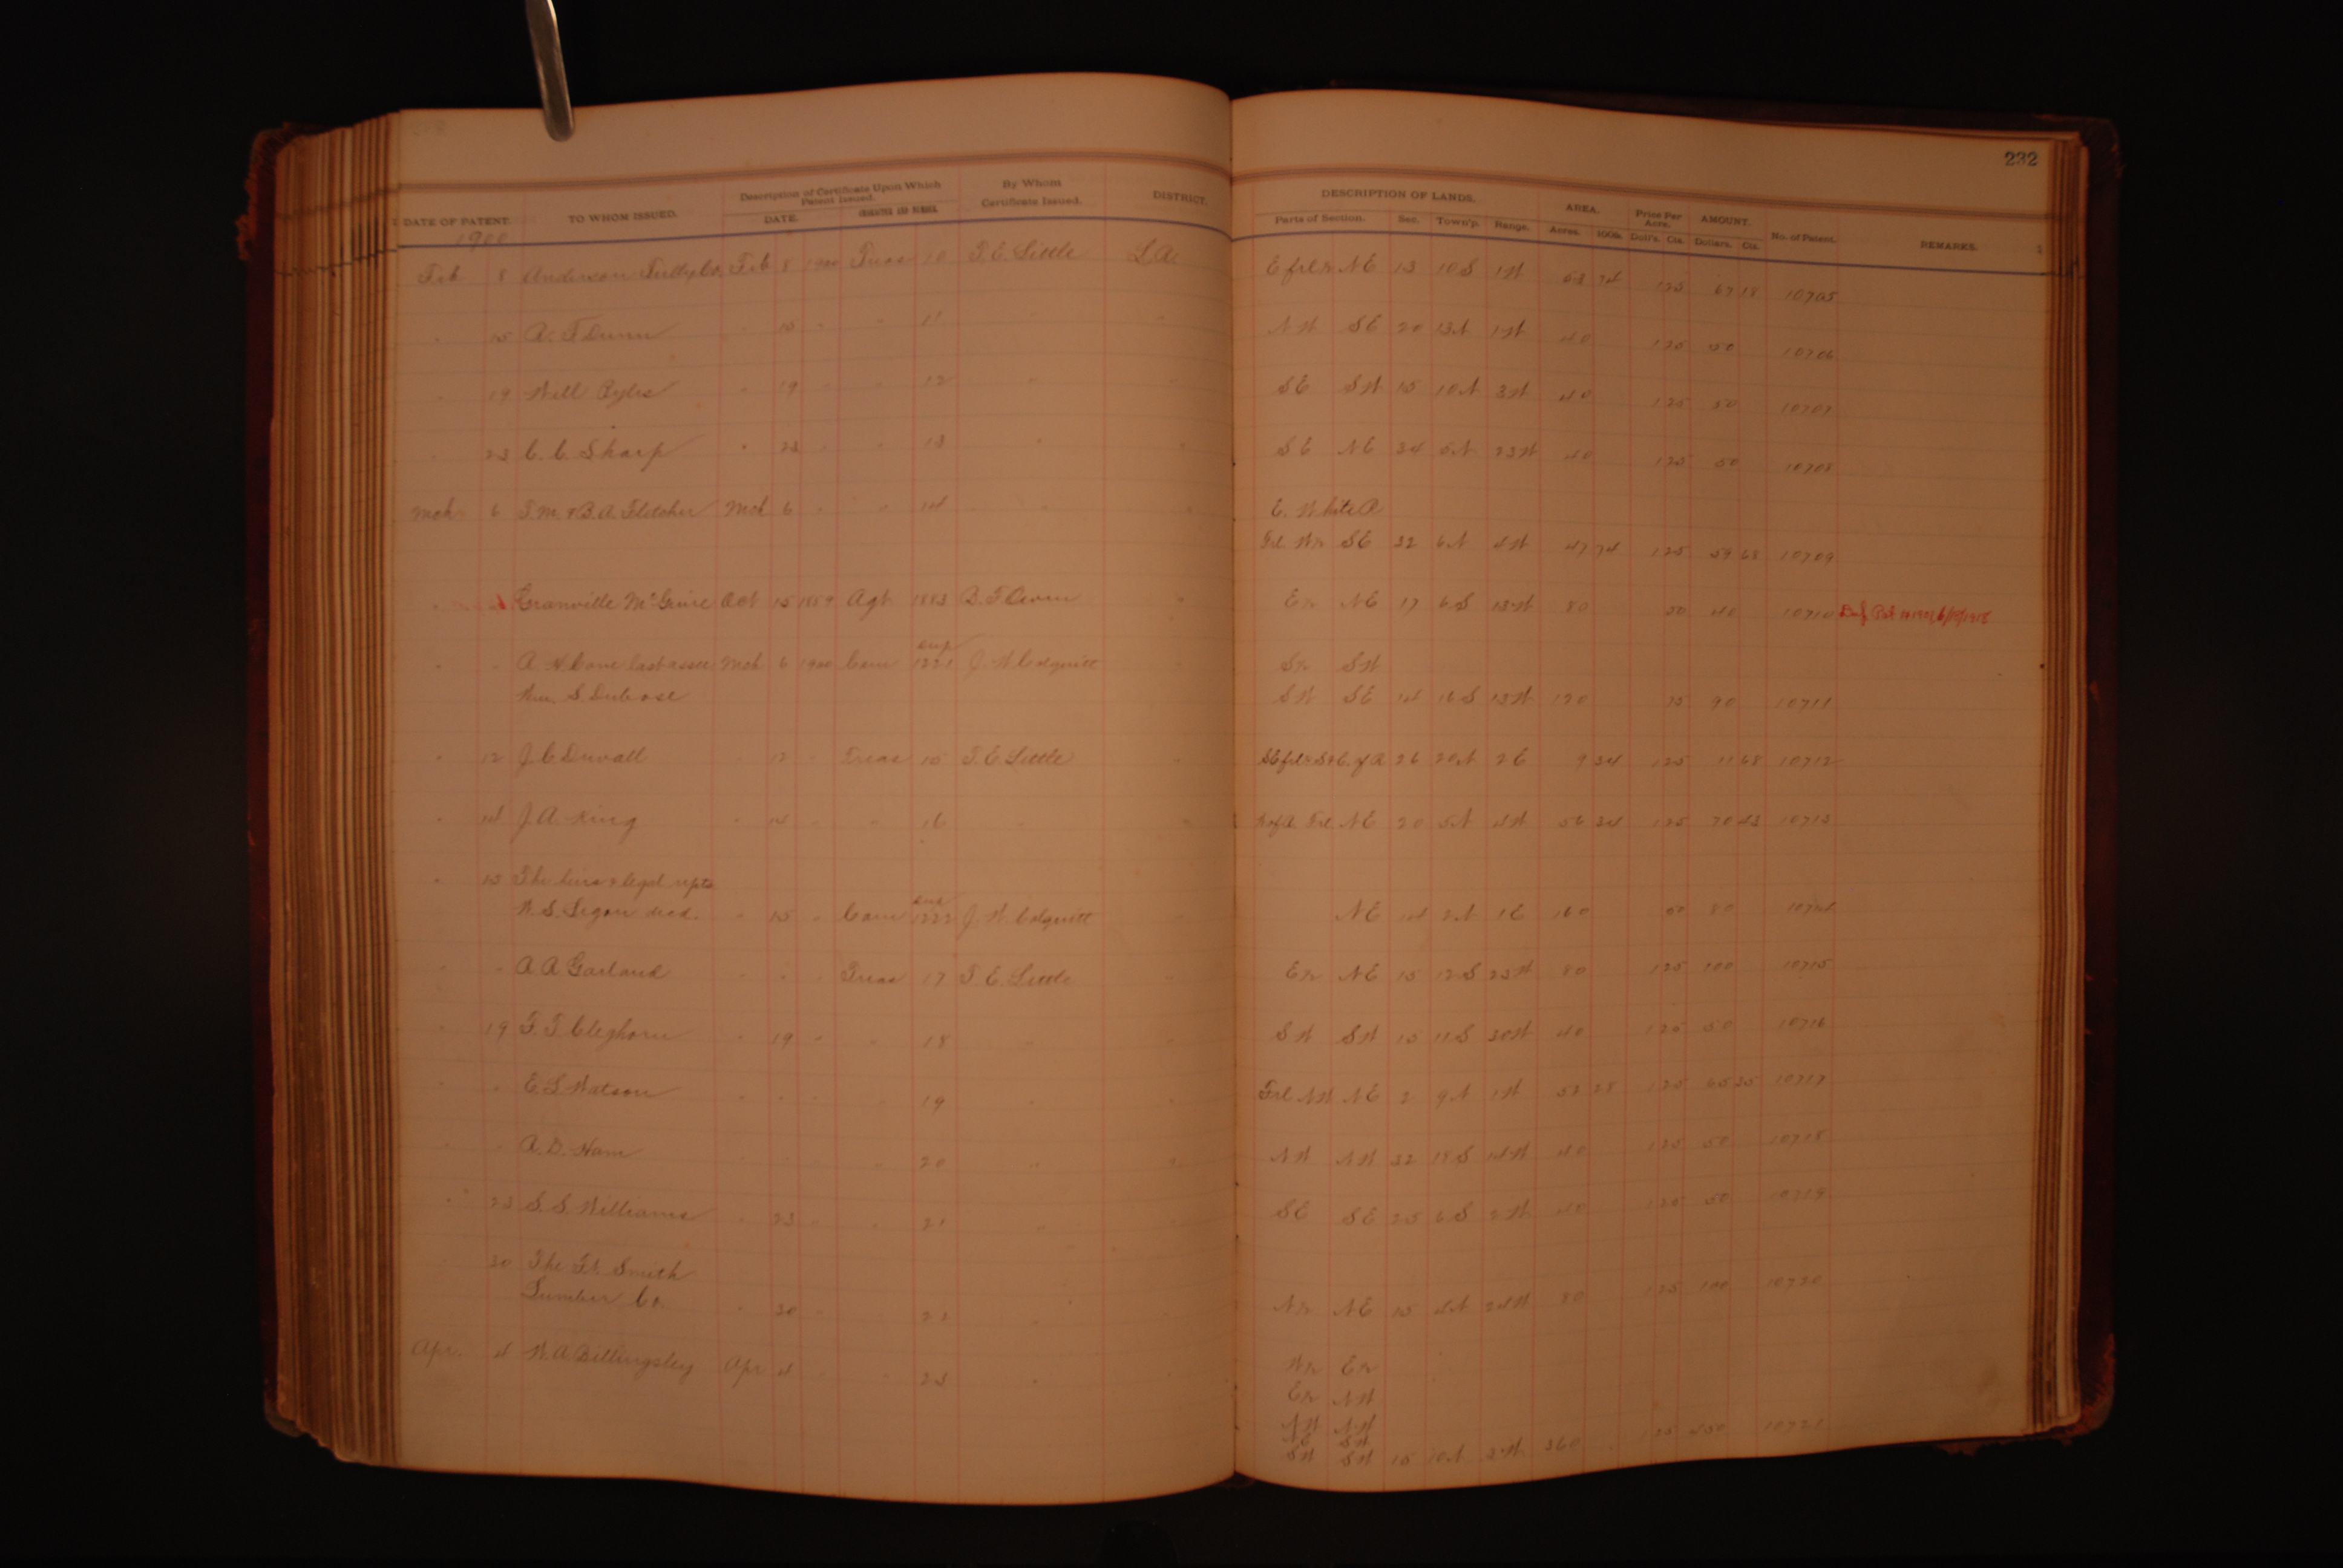 232
DATE OF PATENT. TO WHOM ISSUED. Description of Certificate Upon Which Patent Issued. DATE. CHARACTER AND NUMBER. By Whom Certificate Issued. DISTRICT. DESCRIPTION OF LANDS. Parts of Section. Sec. Town'p Range. AREA. Acres. 100th. Price Per Acre. Doll's. Cts. AMOUNT. Dollars. Cts. No. of Patent. REMARKS.
1900
Feb 8 Anderson Tully Co. Feb 8 1900 Treas 10 T. E. Little L.A. E frl ½ NE 13 10 S 1 W 53 74 1 25 67 18 10705
" 15 A. T. Dunn " 15 " " 11 " " NW SE 20 13 N 1 W 40 1 25 50 10706
" 19 Will Pyles " 19 " " 12 " " SE SW 15 10 N 3 W 40 1 25 50 10707
" 23 C. C. Sharp " 23 " " 13 " " SE NE 34 5 N 23 W 40 1 25 50 10708
Mch 6 T. M. & B. A. Fletcher Mch 6 " " 14 " " E. White R
Frl W½ SE 32 6 N 4 W 47 74 1 25 59 68 10709
" Granville McGuire Oct 15 1859 Agt 1883 " E½ NE 17 6 S 13 W 80 50 40 10710
" " A. H. Cone last assee Mch 6 1900 Com 1221 J. W. Colquitt " S½ SW
Wm. S. Dubose SW SE 14 16 S 13 W 120 75 90 10711
" 12 J. C. Duvall " 12 " Treas 15 T. E. Little " 26 20 N 2 E 9 34 1 25 11 68 10712
" 14 J. A. King " 14 " " 16 " " Frl. NE 20 5 N 4 W 56 34 1 25 70 43 10713
" 15 The heirs & legal repts.
W. S. Ligon decd. " 15 " Com 1222 J. W. Colquitt " NE 14 2 N 1 E 160 50 80 10714
" " A A Garland " " " Treas 17 T. E. Little " E½ NE 15 12 S 23 W 80 1 25 100 10715
" 19 F. T. Cleghorn " 19 " " 18 " " SW SW 15 11 S 30 W 40 1 25 50 10716
" " E. S. Watson " " " " 19 " " Frl NW NE 2 9 N 1 W 52 28 1 25 65 35 10717
" " A. D. Ham " " " " 20 " " NW NW 32 18 S 14 W 40 1 25 50 10718
" 23 S. S. Williams " 23 " " 21 " " SE SE 25 6 S 2 W 40 1 25 50 10719
" 30 The Ft. Smith
Lumber Co. " 30 " " 22 " " N½ NE 15 4 N 24 W 80 1 25 100 10720
Apr. 4 W. A. Billingsley Apr 4 " " 23 " " W½ E½
E½ NW
NW NW
NE SW
SW SW 15 10 N 3 W 360 1 25 450 10721